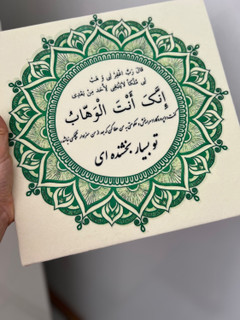 قَالَ رَبِّ اغْفِرْ لِي وَ هَبْ
لِي مُلْكًا لَا يَنْبَغِي لِأَحَدٍ مِنْ بَعْدِي
إِنَّكَ أَنْتَ الْوَهَّابُ
تو بسیار بخشنده ای